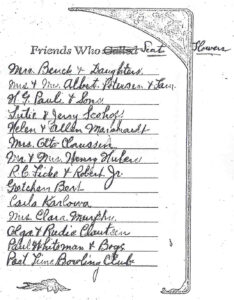 Friends Who Called Sent Flowers
Mrs. Benck & Daughters
Mrs & Mr. Albert Petersen & Fam.
W G. Pauls & Sons
Julie & Jerry
Helen & Allen Marshardt
Mrs. Otto Claussin
Mr & Mrs. Henry
R. C. Ficke & Robert Jr.
Gotcham Bert
Carla Karlowa
Mrs Clara Murphy
Olga & Rudie
Paul Whiteman & Boys
Past Time Bowling Club